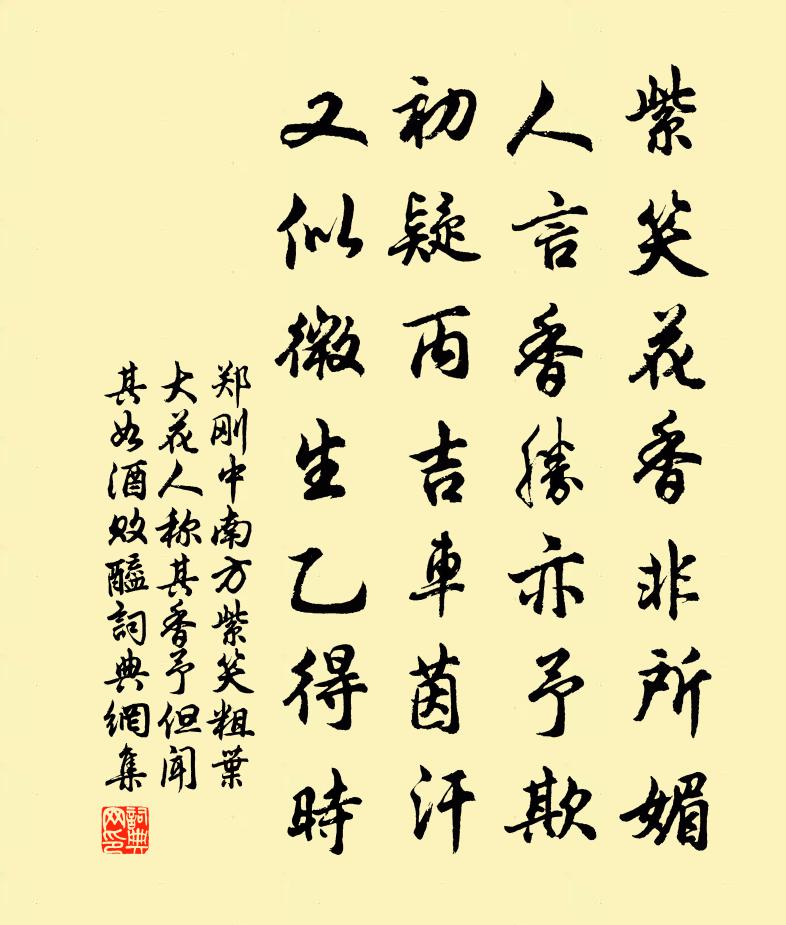 紫笑花香非所媚
人言香勝亦予欺
初疑丙吉車茵汗
又似微生乙得時
郑刚中南方紫笑粗葉
大花人称其香予但闻
其如酒败醯詞典網集
詞典网印